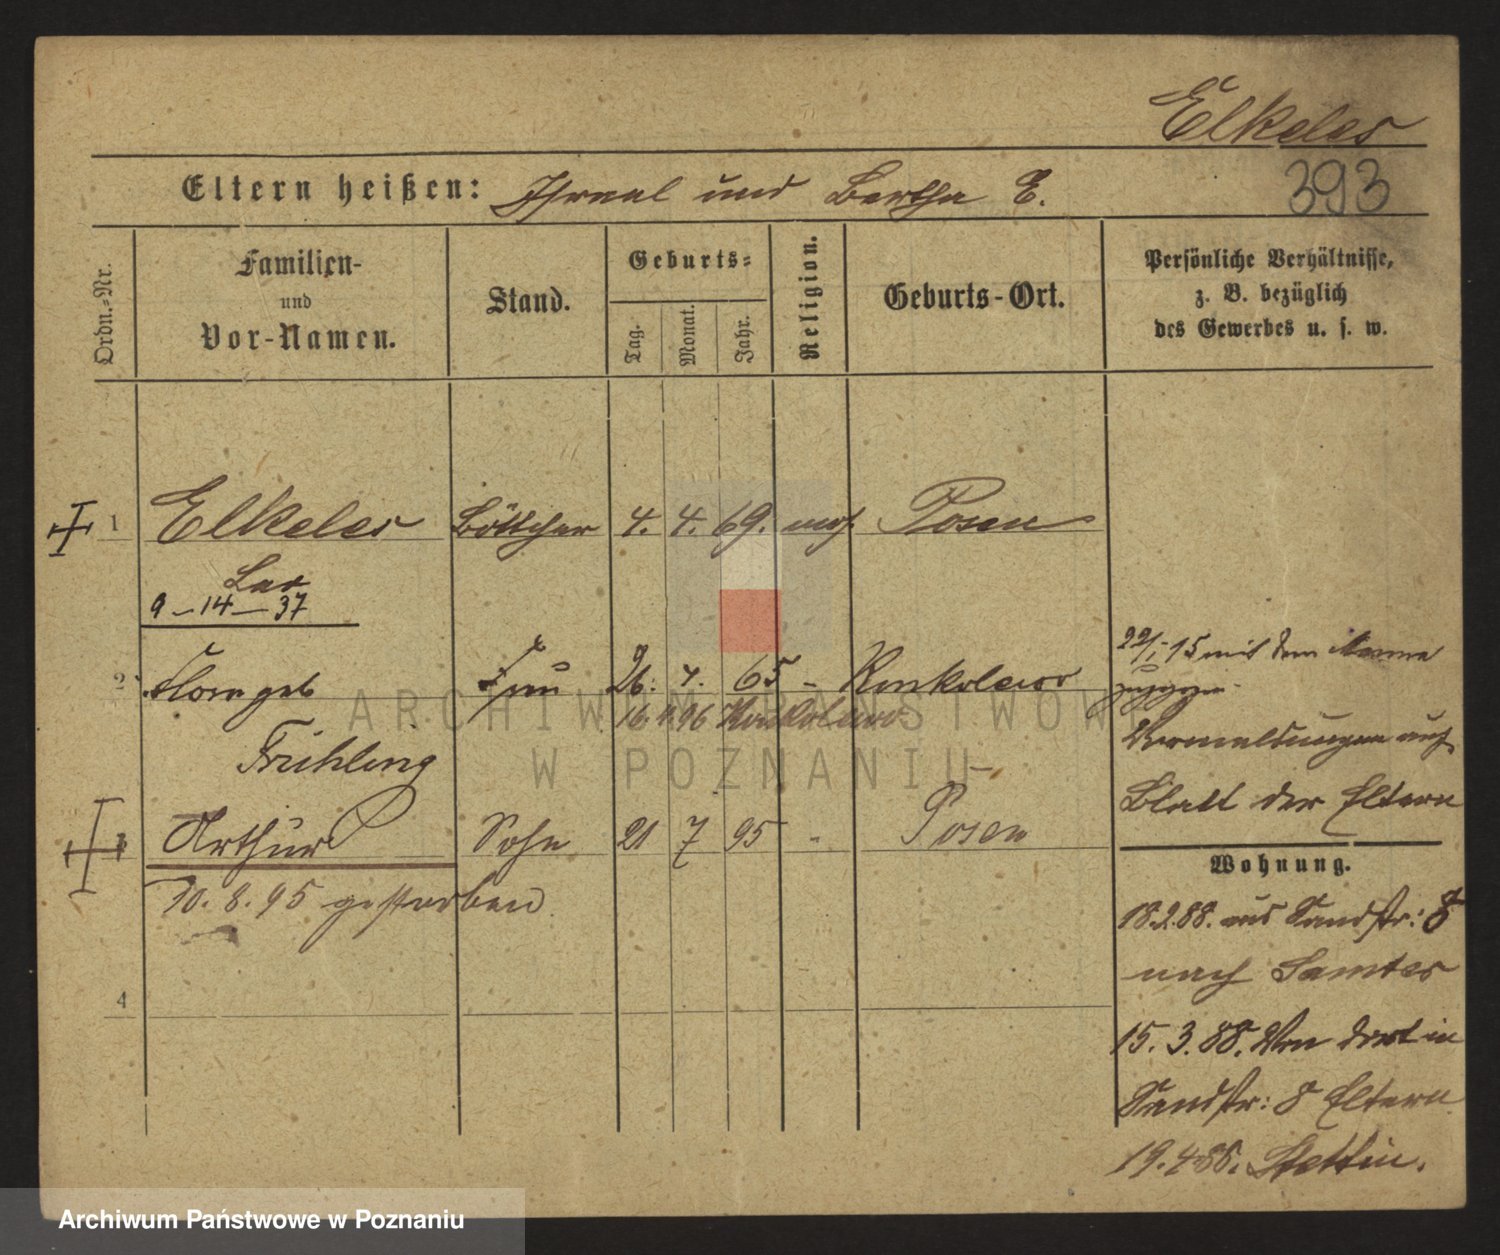 Elkeles
Eltern heißen: Isreal und Bertha E.
393
Ordn.-Nr.
Familien-
und
Vor-Namen.
Stand.
Geburts-
Tag.
Monat.
Jahr.
Religion.
Geburts-Ort.
Persönliche Verhältnisse,
z. B. bezüglich
des Gewerbes u. s. w.
1 Elkeles Böttcher 4. 4. 69. mos. Posen
9 - 14 - 37
22/1 15 mit dem Manne
zugezogen
2 geb Frau 26. 4. 65 -
16 4 96
Frühling
Vermeldungen auf
Blatt der Eltern
3 Arthur Sohn 21 7 95 - Posen
Wohnung.
30. 8. 95 gestorben
18.2.88. aus Sandstr: 8
nach Samter
4
15. 3. 88. Von dort in
Sandstr: 8 Eltern
19.4.88. Stettin.
ARCHIWUM PAŃSTWOWE
W POZNANIU
Archiwum Państwowe w Poznaniu